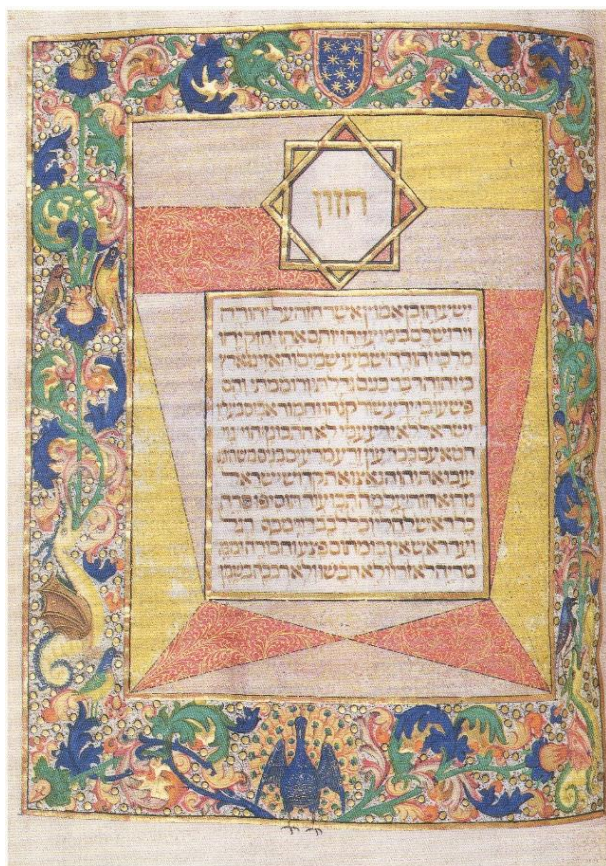 חזון
ישעיהו בן אמוץ אשר חזה על יהודה
וירושלם בימי עזיהו יותם אחז יחזקיהו
מלכי יהודה שמעו שמים והאזיני ארץ
כי יהוה דבר בנים גדלתי ורוממתי והם
פשעו בי ידע שור קנהו וחמור אבוס בעליו
ישראל לא ידע עמי לא התבונן הוי גוי
חטא עם כבד עון זרע מרעים בנים משחיתים
עזבו את יהוה נאצו את קדוש ישראל
נזרו אחור על מה תכו עוד תוסיפו סרה
כל ראש לחלי וכל לבב דוי מכף רגל
ועד ראש אין בו מתם פצע וחבורה ומכה
טריה לא זרו ולא חבשו ולא רככה בשמן